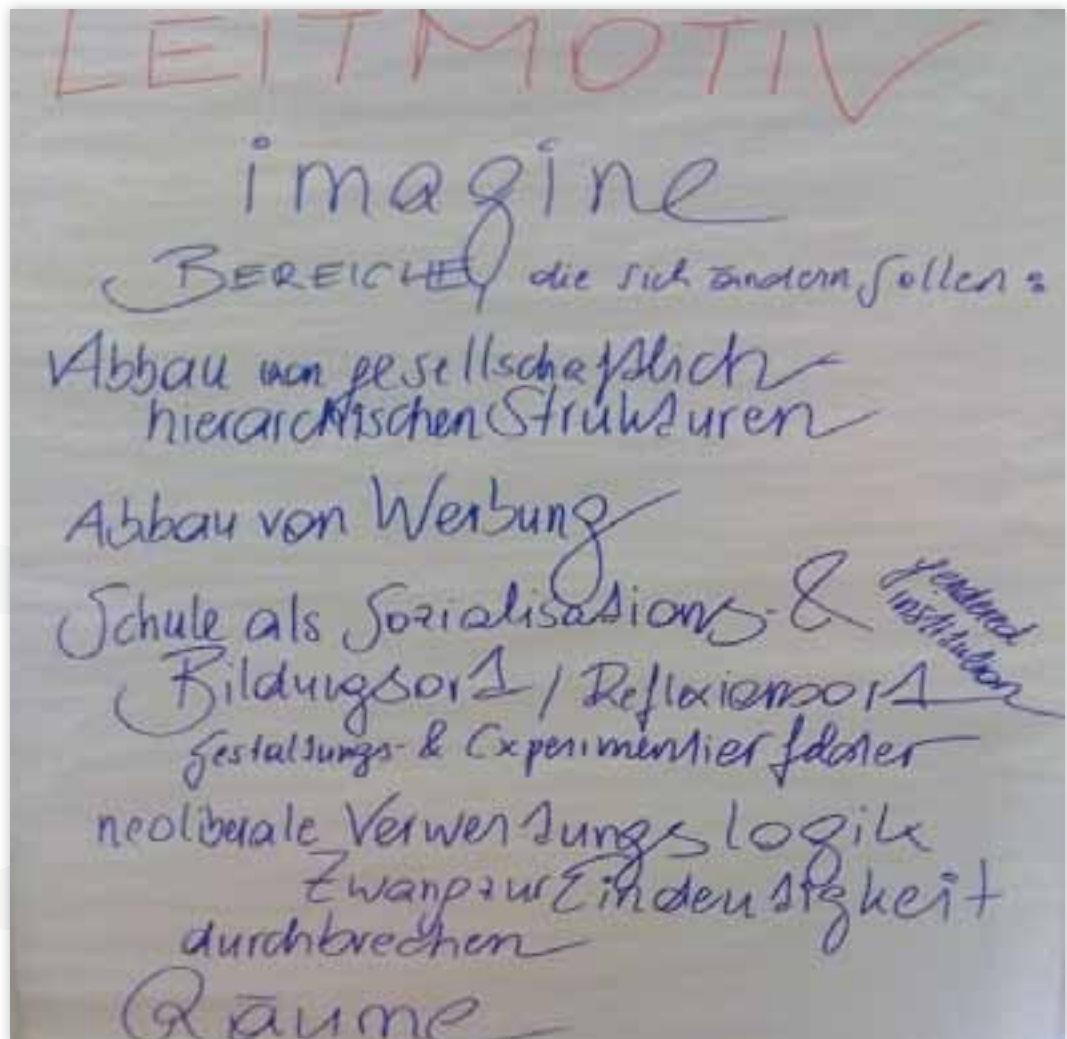 LEITMOTIV
imagine
BEREICHE, die sich ändern sollen:
Abbau von gesellschaftlich
hierarchischen Strukturen
Abbau von Werbung
Schule als Sozialisations- &
gendered
institution
Bildungsort / Reflexionsort
gestaltungs- & Experimentier
neoliberale Verwertungslogik
Zwang zur Eindeutigkeit
durchbrechen
Räume